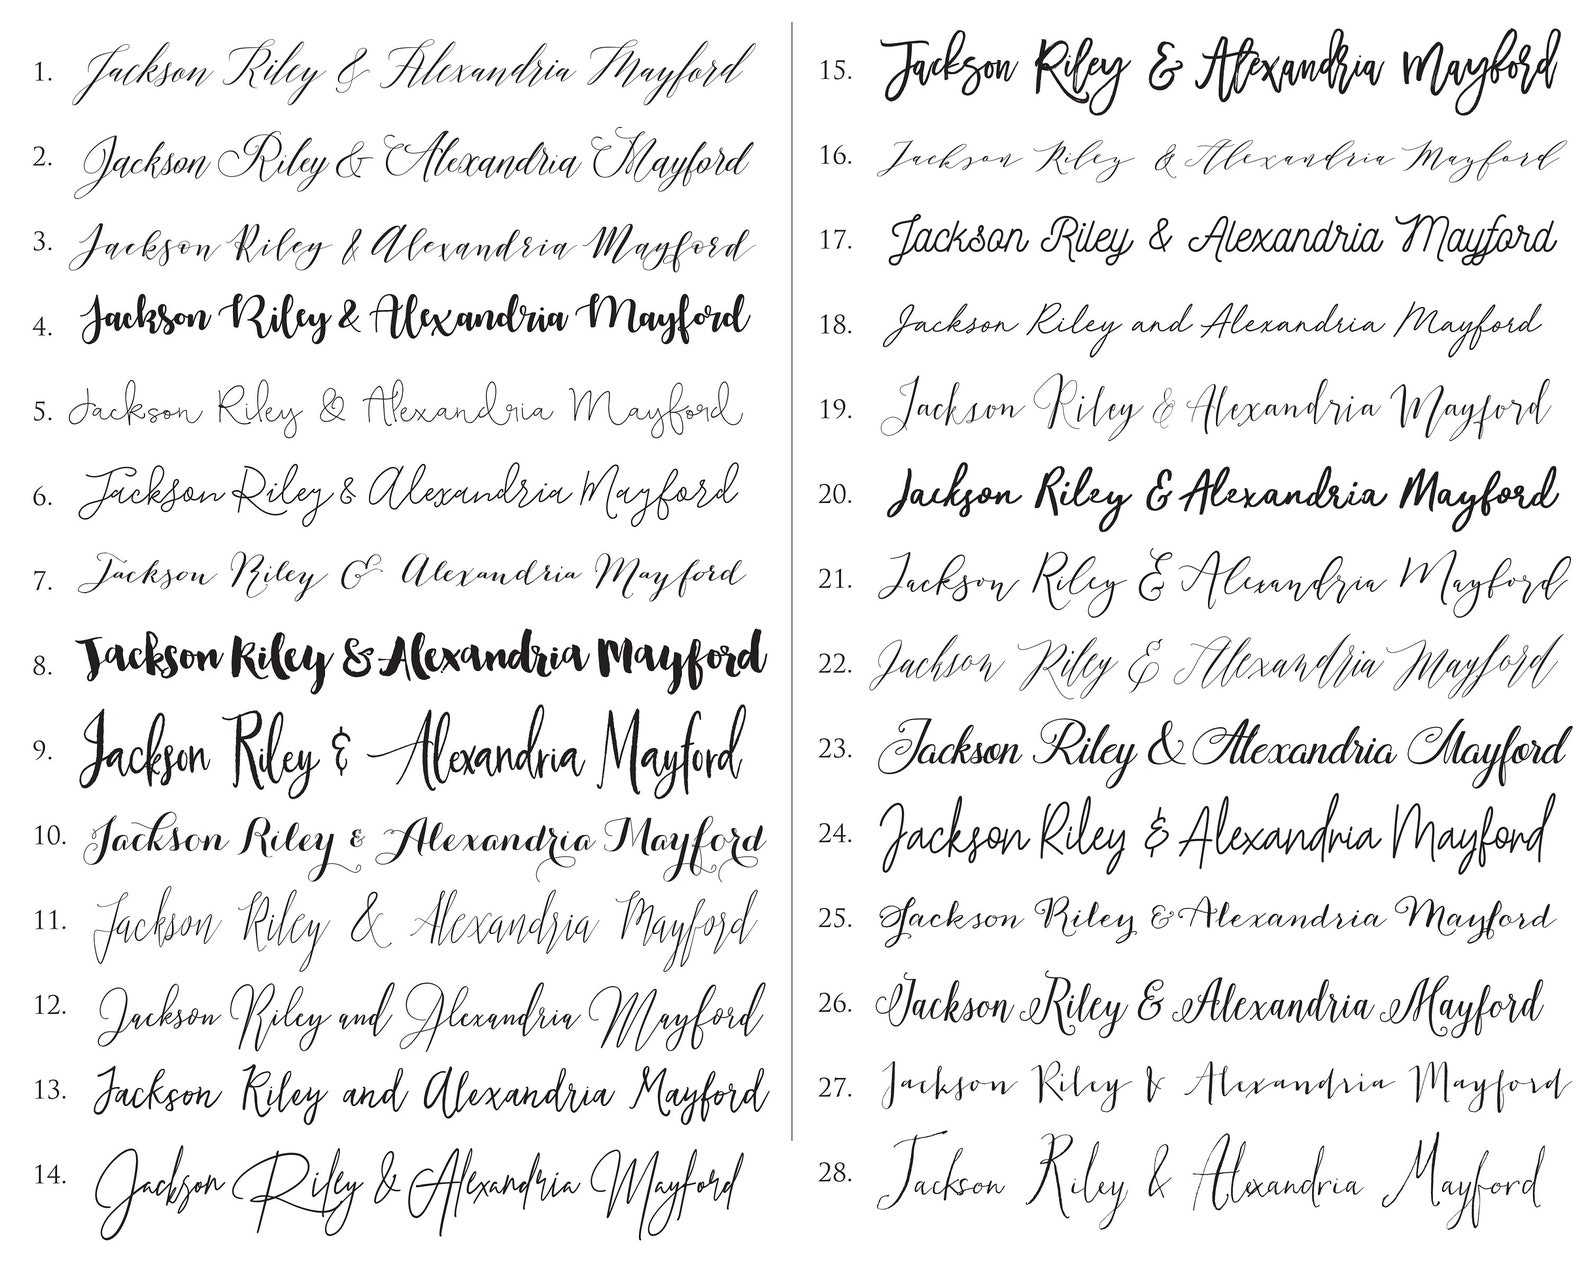 1. Jackson Riley & Alexandria Mayford
2. Jackson Riley & Alexandria Mayford
3. Jackson Riley & Alexandria Mayford
4. Jackson Riley & Alexandria Mayford
5. Jackson Riley & Alexandria Mayford
6. Jackson Riley & Alexandria Mayford
7. Jackson Riley & Alexandria Mayford
8. Jackson Riley & Alexandria Mayford
9. Jackson Riley & Alexandria Mayford
10. Jackson Riley & Alexandria Mayford
11. Jackson Riley & Alexandria Mayford
12. Jackson Riley and Alexandria Mayford
13. Jackson Riley and Alexandria Mayford
14. Jackson Riley & Alexandria Mayford
15. Jackson Riley & Alexandria Mayford
16. Jackson Riley & Alexandria Mayford
17. Jackson Riley & Alexandria Mayford
18. Jackson Riley and Alexandria Mayford
19. Jackson Riley & Alexandria Mayford
20. Jackson Riley & Alexandria Mayford
21. Jackson Riley & Alexandria Mayford
22. Jackson Riley & Alexandria Mayford
23. Jackson Riley & Alexandria Mayford
24. Jackson Riley & Alexandria Mayford
25. Jackson Riley & Alexandria Mayford
26. Jackson Riley & Alexandria Mayford
27. Jackson Riley & Alexandria Mayford
28. Jackson Riley & Alexandria Mayford